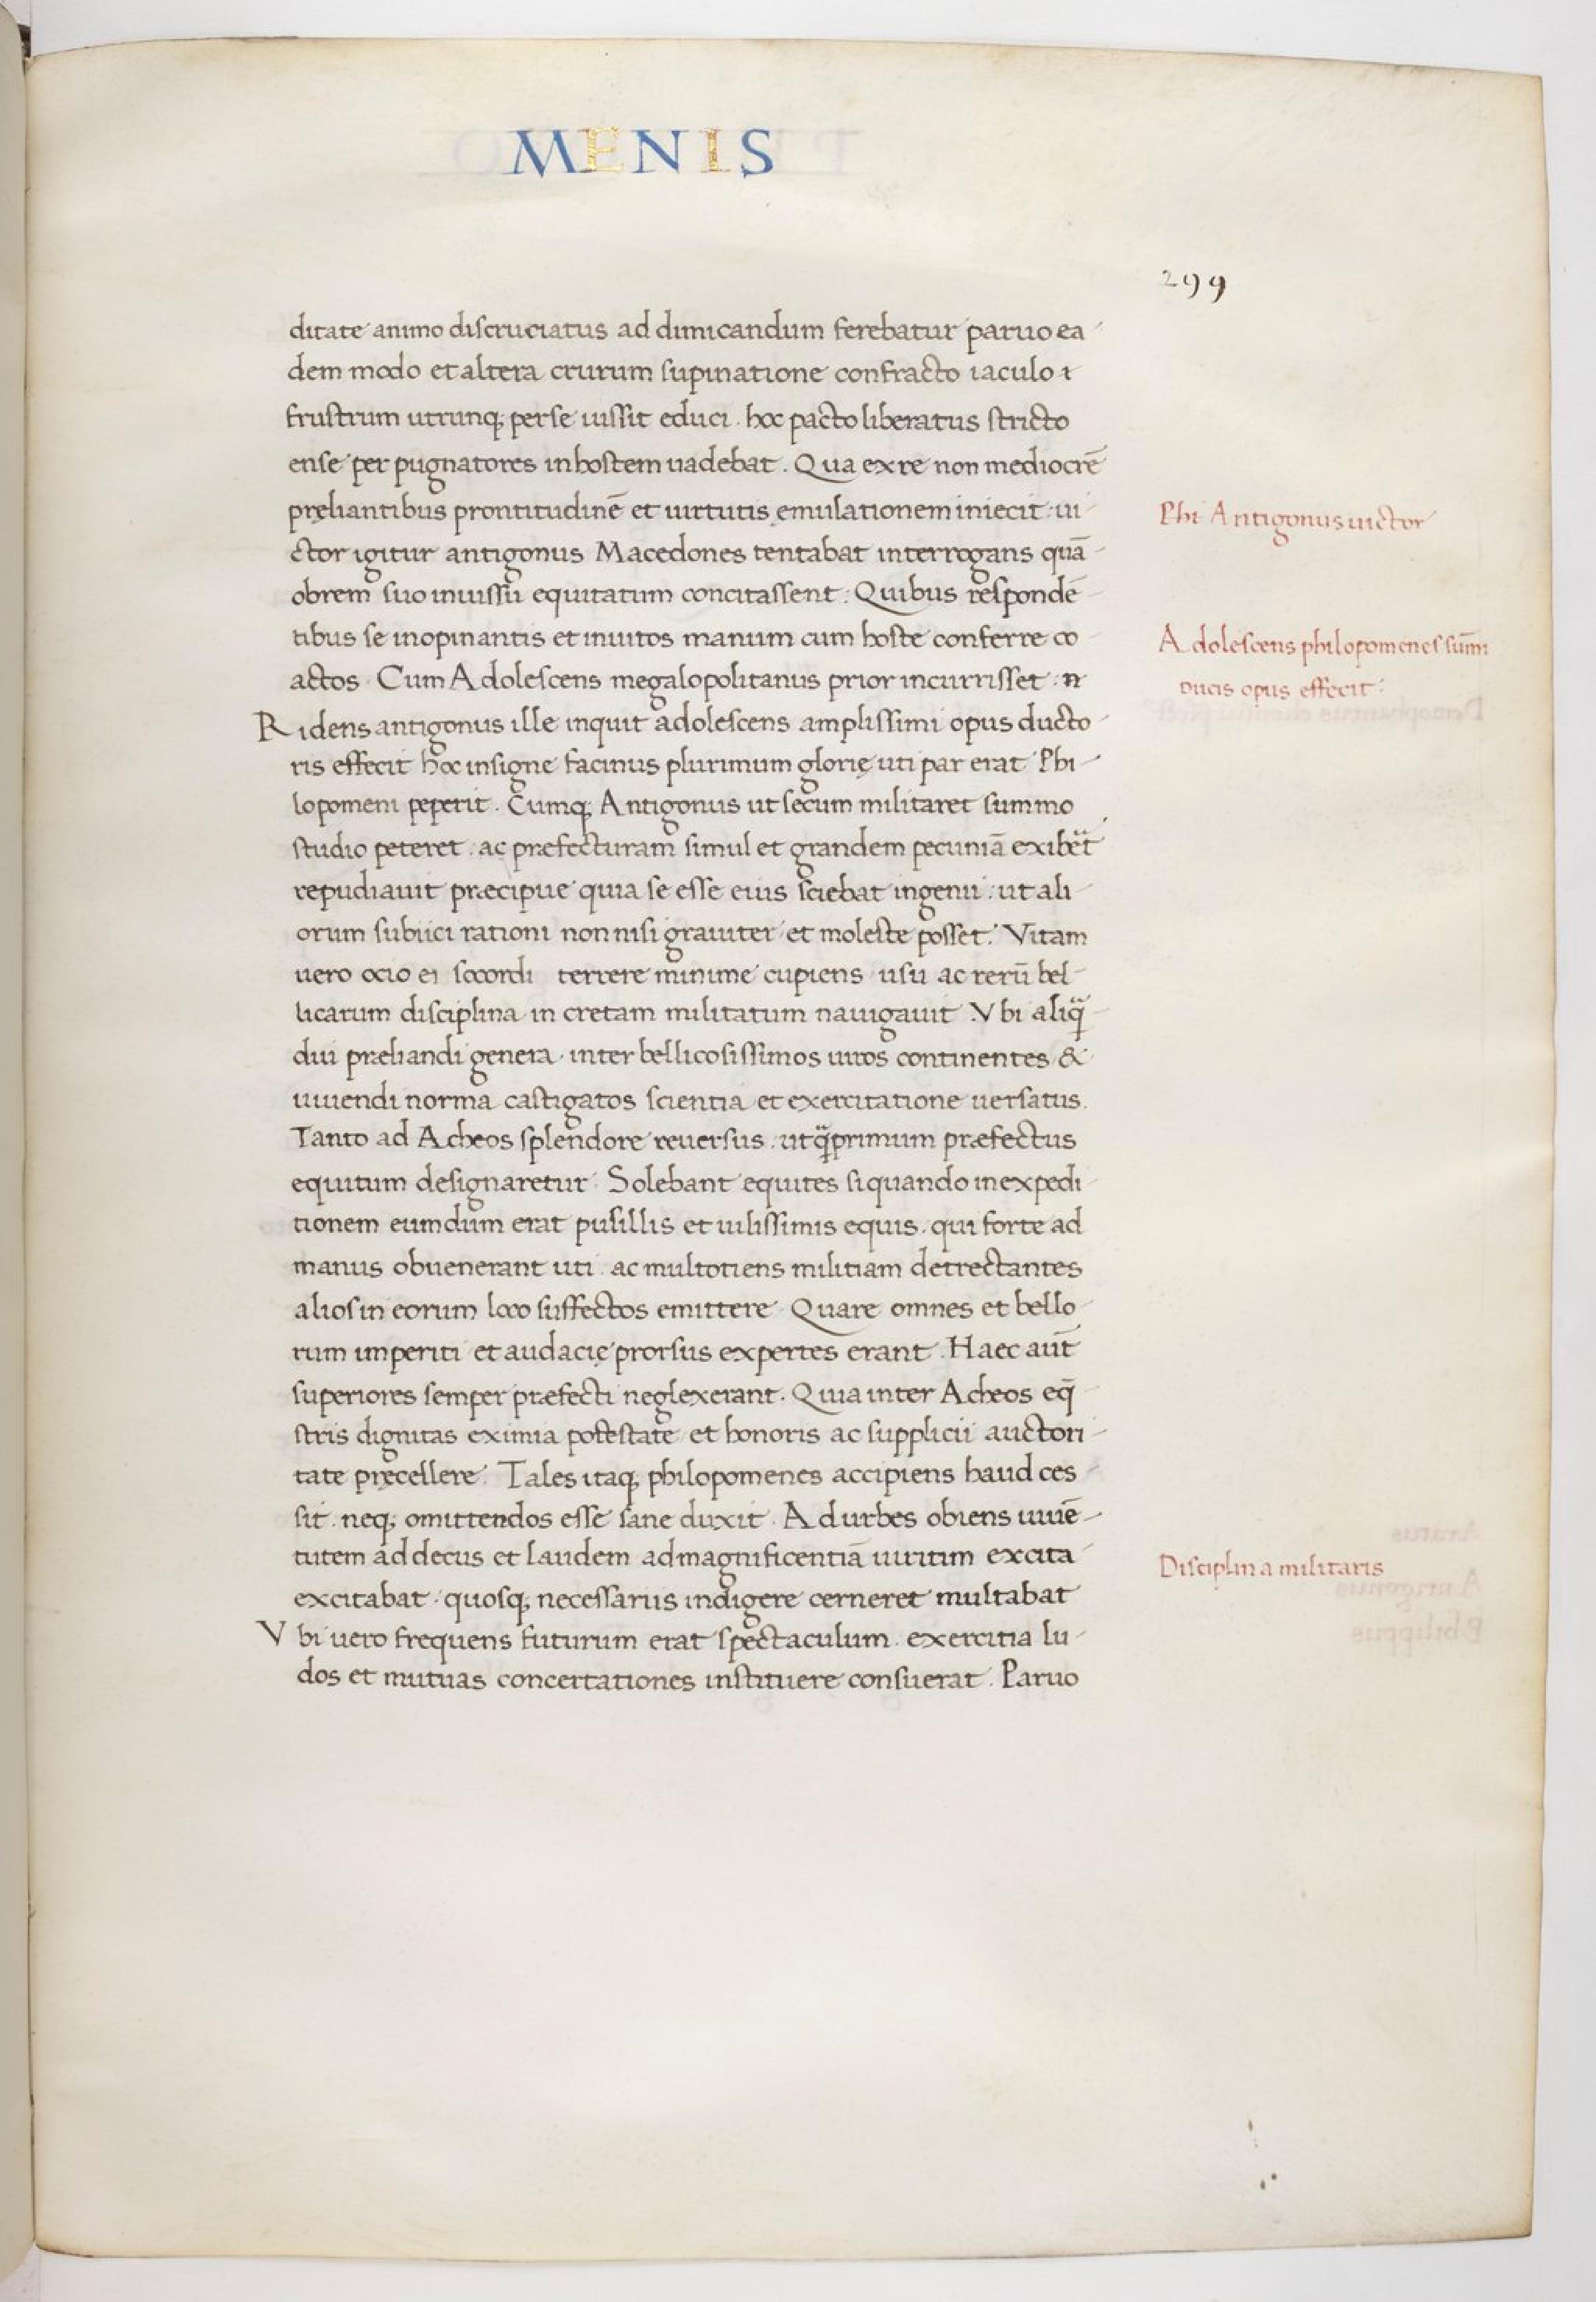 MENIS
299
ditate animo discruciatus ad dimicandum ferebatur paruo ea-
dem modo et altera crurum supinatione confracto iaculo &
frustrum utrunq; per se iussit educi. hoc pacto liberatus stricto
ense per pugnatores in hostem uadebat. Qua ex re non mediocrē
pręliantibus prontitudinē et uirtutis emulationem iniecit: ui-
ctor igitur antigonus Macedones tentabat interrogans quā-
obrem suo iniussu equitatum concitassent: Quibus respondē-
tibus se inopinantis et inuitos manum cum hoste conferre co-
actos. Cum Adolescens megalopolitanus prior incurrisset:
Ridens antigonus ille inquit adolescens amplissimi opus ducto-
ris effecit hoc insigne facinus plurimum glorię uti par erat Phi-
lopomeni peperit. Cumq; Antigonus ut secum militaret summo
studio peteret. ac præfecturam simul et grandem pecuniā exibēt
repudiauit præcipue quia se esse eius sciebat ingenii: ut ali-
orum subiici rationi non nisi grauiter et moleste posset. Vitam
uero ocio ei socordi terrere minime cupiens usu ac rerū bel-
licarum disciplina in cretam militatum nauigauit Vbi aliq̄-
diu præliandi genera inter bellicosissimos uiros continentes &
uiuendi norma castigatos scientia et exercitatione uersatus.
Tanto ad Acheos splendore reuersus. ut q̄primum præfectus
equitum designaretur. Solebant equites siquando in expedi-
tionem eumdum erat pusillis et uilissimis equis. qui forte ad
manus obuenerant uti. ac multotiens militiam detrectantes
alios in eorum loco suffectos emittere Quare omnes et bello-
rum imperiti et audacię prorsus expertes erant. Haec aut̄
superiores semper præfecti neglexerant. Quia inter Acheos eq̄-
stris dignitas eximia potestate et honoris ac supplicii auctori-
tate pręcellere. Tales itaq; philopomenes accipiens haud ces-
sit. neq; omittendos esse sane duxit. Ad urbes obiens iuuē-
tutem ad decus et laudem ad magnificentiā uiritim excita-
excitabat: quosq; necessariis indigere cerneret multabat
Vbi uero frequens futurum erat spectaculum. exercitia lu-
dos et mutuas concertationes instituere consuerat. Paruo
Phi Antigonus uictor
Adolescens philopomenes sūmi
ducis opus effecit:
Disciplina militaris